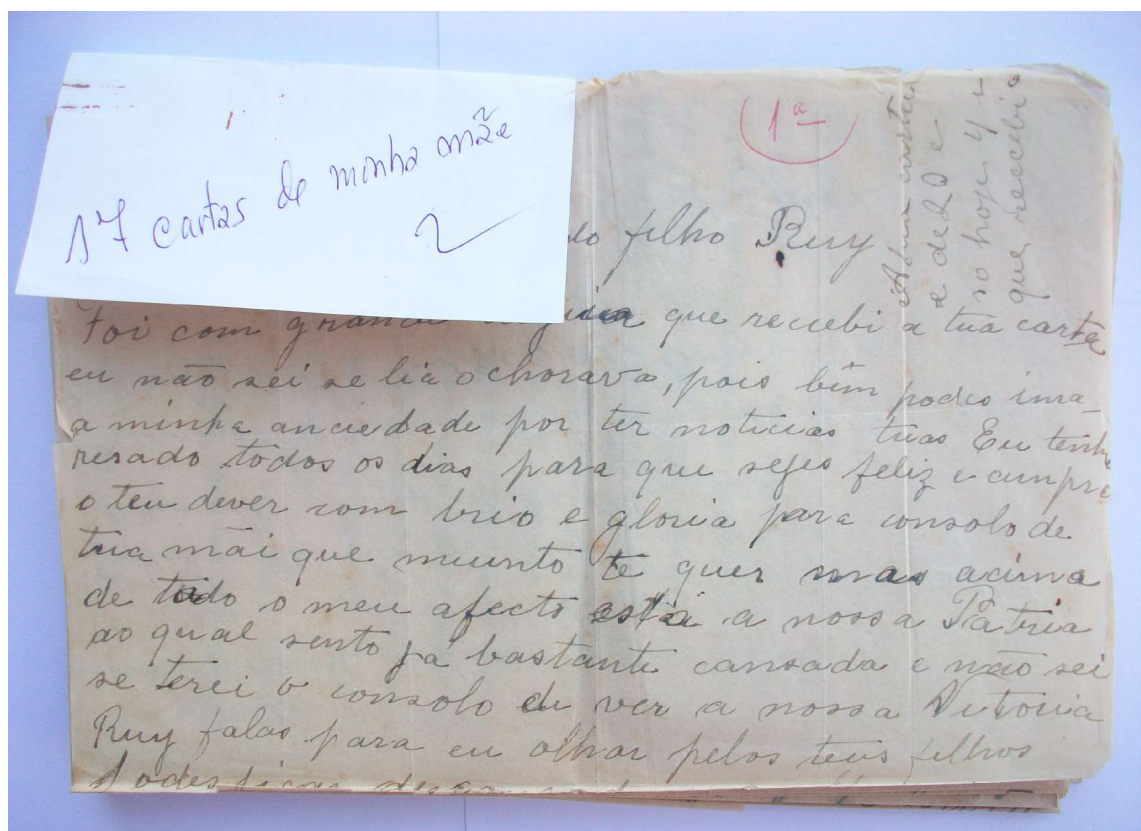 17 cartas de minha mãe
2
1ª
A tua carta
e de 22 e
so hoje 4 é
que recebi o
filho Ruy
Foi com grande que reccebi a tua carta
eu não sei se lia o chorava, pois bêm podes ima-
a minha anciedade por ter noticias tuas Eu tenho
resado todos os dias para que sejes feliz e cumpre
o teu dever com brio e gloria para consolo de
tua mãi que muunto te quer mas acima
de todo o meu afecto está a nossa Pátria
ao qual sento já bastante cansada e não sei
se terei o consolo de ver a nossa Vitoria
Ruy falas para eu olhar pelos teus filhos
Podes ficar